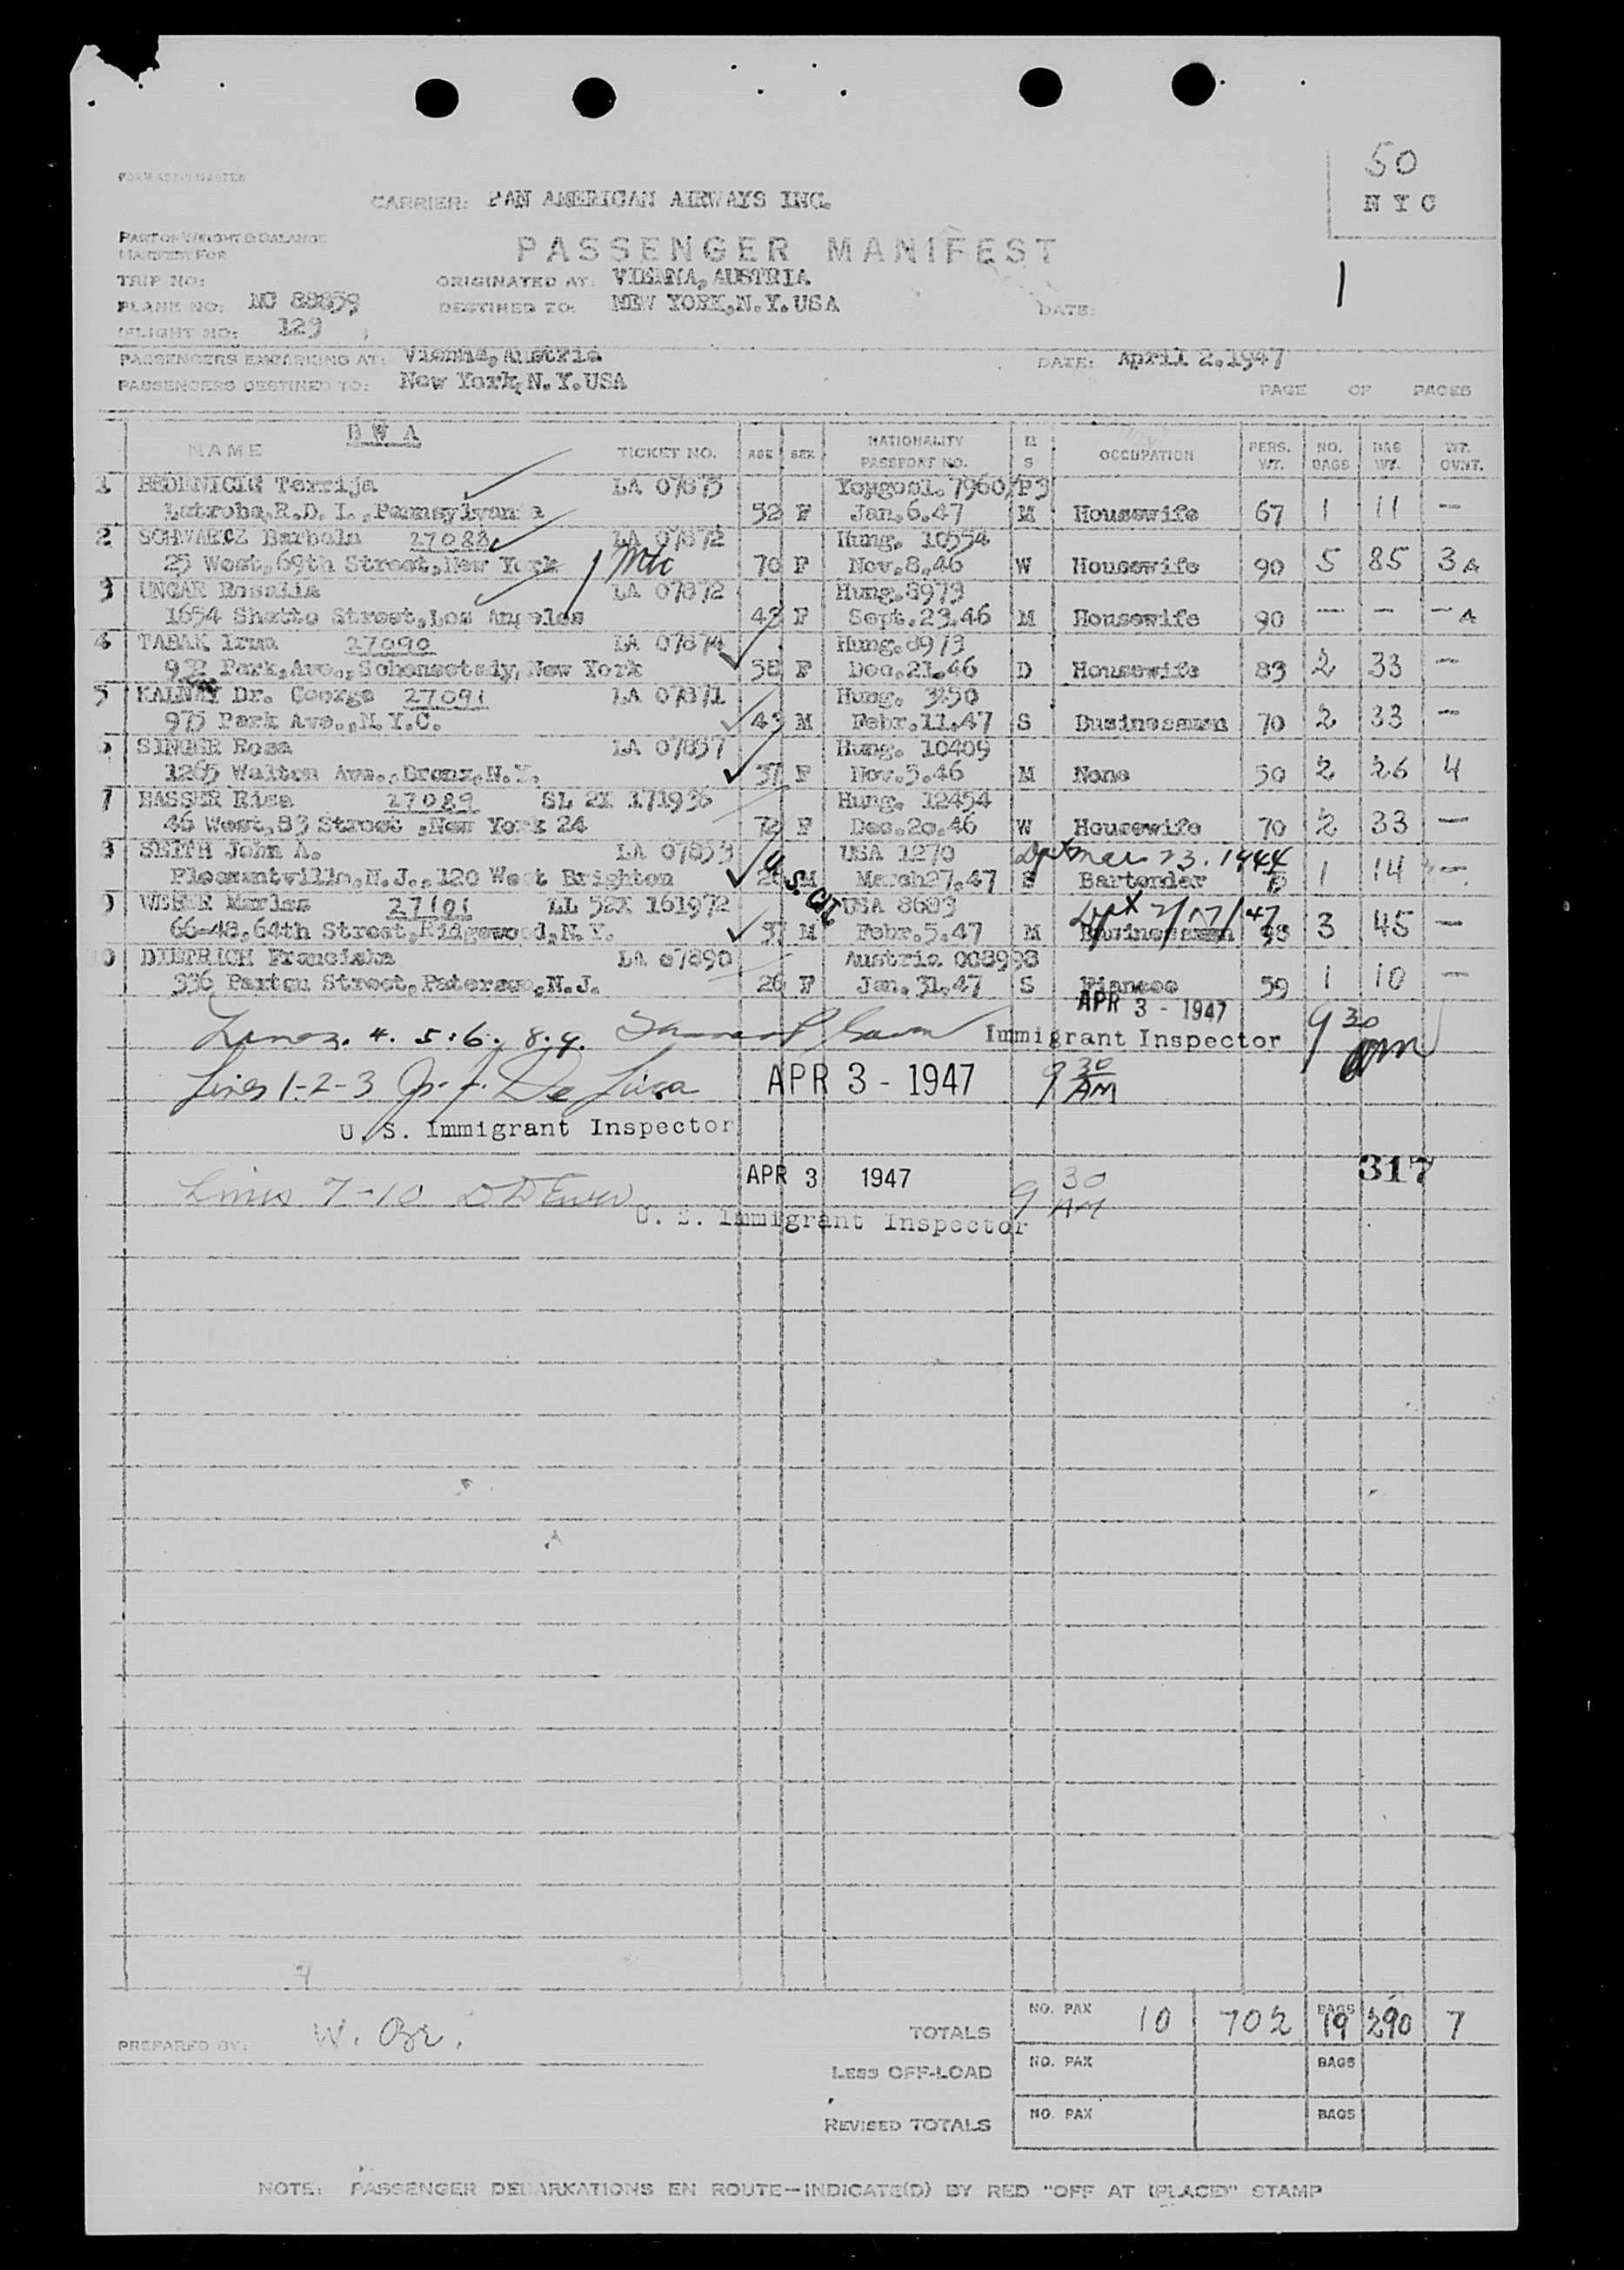 50
NYC
CARRIER: PAN AMERICAN AIRWAYS INC.
PART OF WEIGHT & BALANCE
MANIFEST FOR
PASSENGER MANIFEST
1
TRIP NO: ORIGINATED AT: VIENNA, AUSTRIA
PLANE NO: NC 88859 DESTINED TO: NEW YORK, N.Y. USA DATE:
FLIGHT NO: 129
PASSENGERS EMBARKING AT: Vienna, Austria DATE: April 2.1947
PASSENGERS DESTINED TO: New York, N.Y. USA
PAGE OF PAGES
NAME TICKET NO. AGE SEX NATIONALITY PASSPORT NO. M S OCCUPATION PERS. WT. NO. BAGS BAG WT. WT. OVWT.
1 LA 07875
Latrobe, R.D. 1., Pennsylvania 52 F Jan.6.47 M Housewife 67 1 11 —
2 SCHWARCZ 27088 LA 07872 Hung. 10554
25 West, 69th Street, New York 70 F Nov.8.46 W Housewife 90 5 85 3
3 UNGAR Rosalia LA 07872 Hung. 8973
1654 Shatto Street, Los Angeles 43 F Sept.23.46 M Housewife 90 — — —
4 TABAK Irma 27090 LA 07874 Hung. 8973
Park, Ave., Schenectady, New York 58 F Dec.21.46 D Housewife 83 2 33 —
5 Dr. George 27091 LA 07871 Hung. 3250
975 Park Ave., N.Y.C. 43 M Febr.11.47 S Businessman 70 2 33 —
6 SINGER Rosa LA 07857 Hung. 10409
1265 Walton Ave., Bronx, N.Y. 37 F Nov.5.46 M None 50 2 26 4
7 27089 SL 2X 171936 Hung. 12454
46 West, 83 Street, New York 24 72 F Dec.20.46 W Housewife 70 2 33 —
8 SMITH John A. LA 07853 U.S. CIT. USA 1270 Dpt Mar 23. 1944
Pleasantville, N.J., 120 West Brighton M March27.47 S Bartender 1 14 —
9 27101 LL 52X 161972 USA 8683 Dpt 2/17/47
66-48, 64th Street, Ridgewood, N.Y. 37 M Febr.5.47 M Businessman 3 45 —
10 DIETRICH Franciska LA 07890 Austria 008998
336 Paxton Street, Paterson, N.J. 26 F Jan. 31.47 S Fiancee 59 1 10 —
APR 3 - 1947
Lines. 4. 5: 6: 8. 9. Immigrant Inspector 9 30 am
Lines 1-2-3 De Luca APR 3 - 1947 9 30 AM
U. S. Immigrant Inspector
317
Lines 7-10 APR 3 1947 9 30 AM
U. S. Immigrant Inspector
TOTALS NO. PAX 10 702 BAGS 19 290 7
PREPARED BY:
LESS OFF-LOAD NO. PAX BAGS
REVISED TOTALS NO. PAX BAGS
NOTE: PASSENGER DEBARKATIONS EN ROUTE—INDICATE(D) BY RED "OFF AT (PLACE)" STAMP